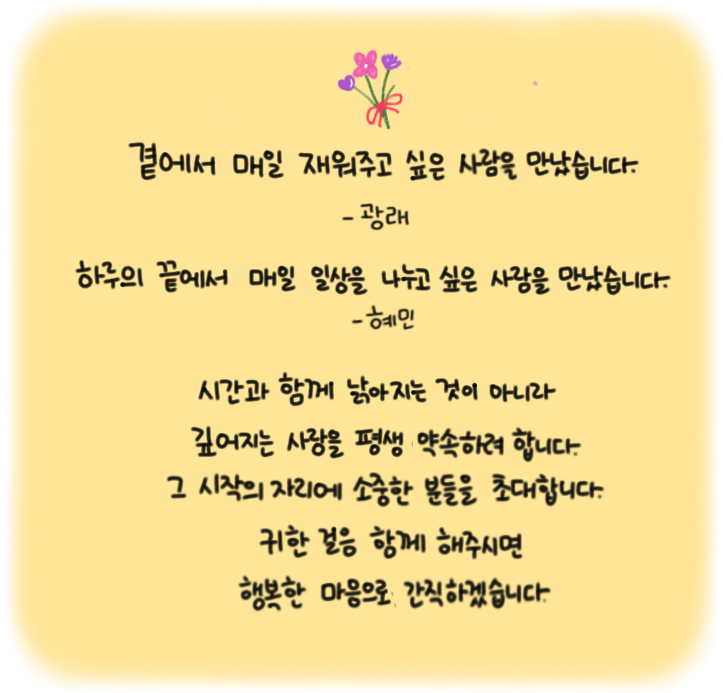 곁에서 매일 재워주고 싶은 사람을 만났습니다.
- 광래
하루의 끝에서 매일 일상을 나누고 싶은 사람을 만났습니다.
- 혜민
시간과 함께 낡아지는 것이 아니라
깊어지는 사랑을 평생 약속하려 합니다.
그 시작의 자리에 소중한 분들을 초대합니다.
귀한 걸음 함께 해주시면
행복한 마음으로 간직하겠습니다.